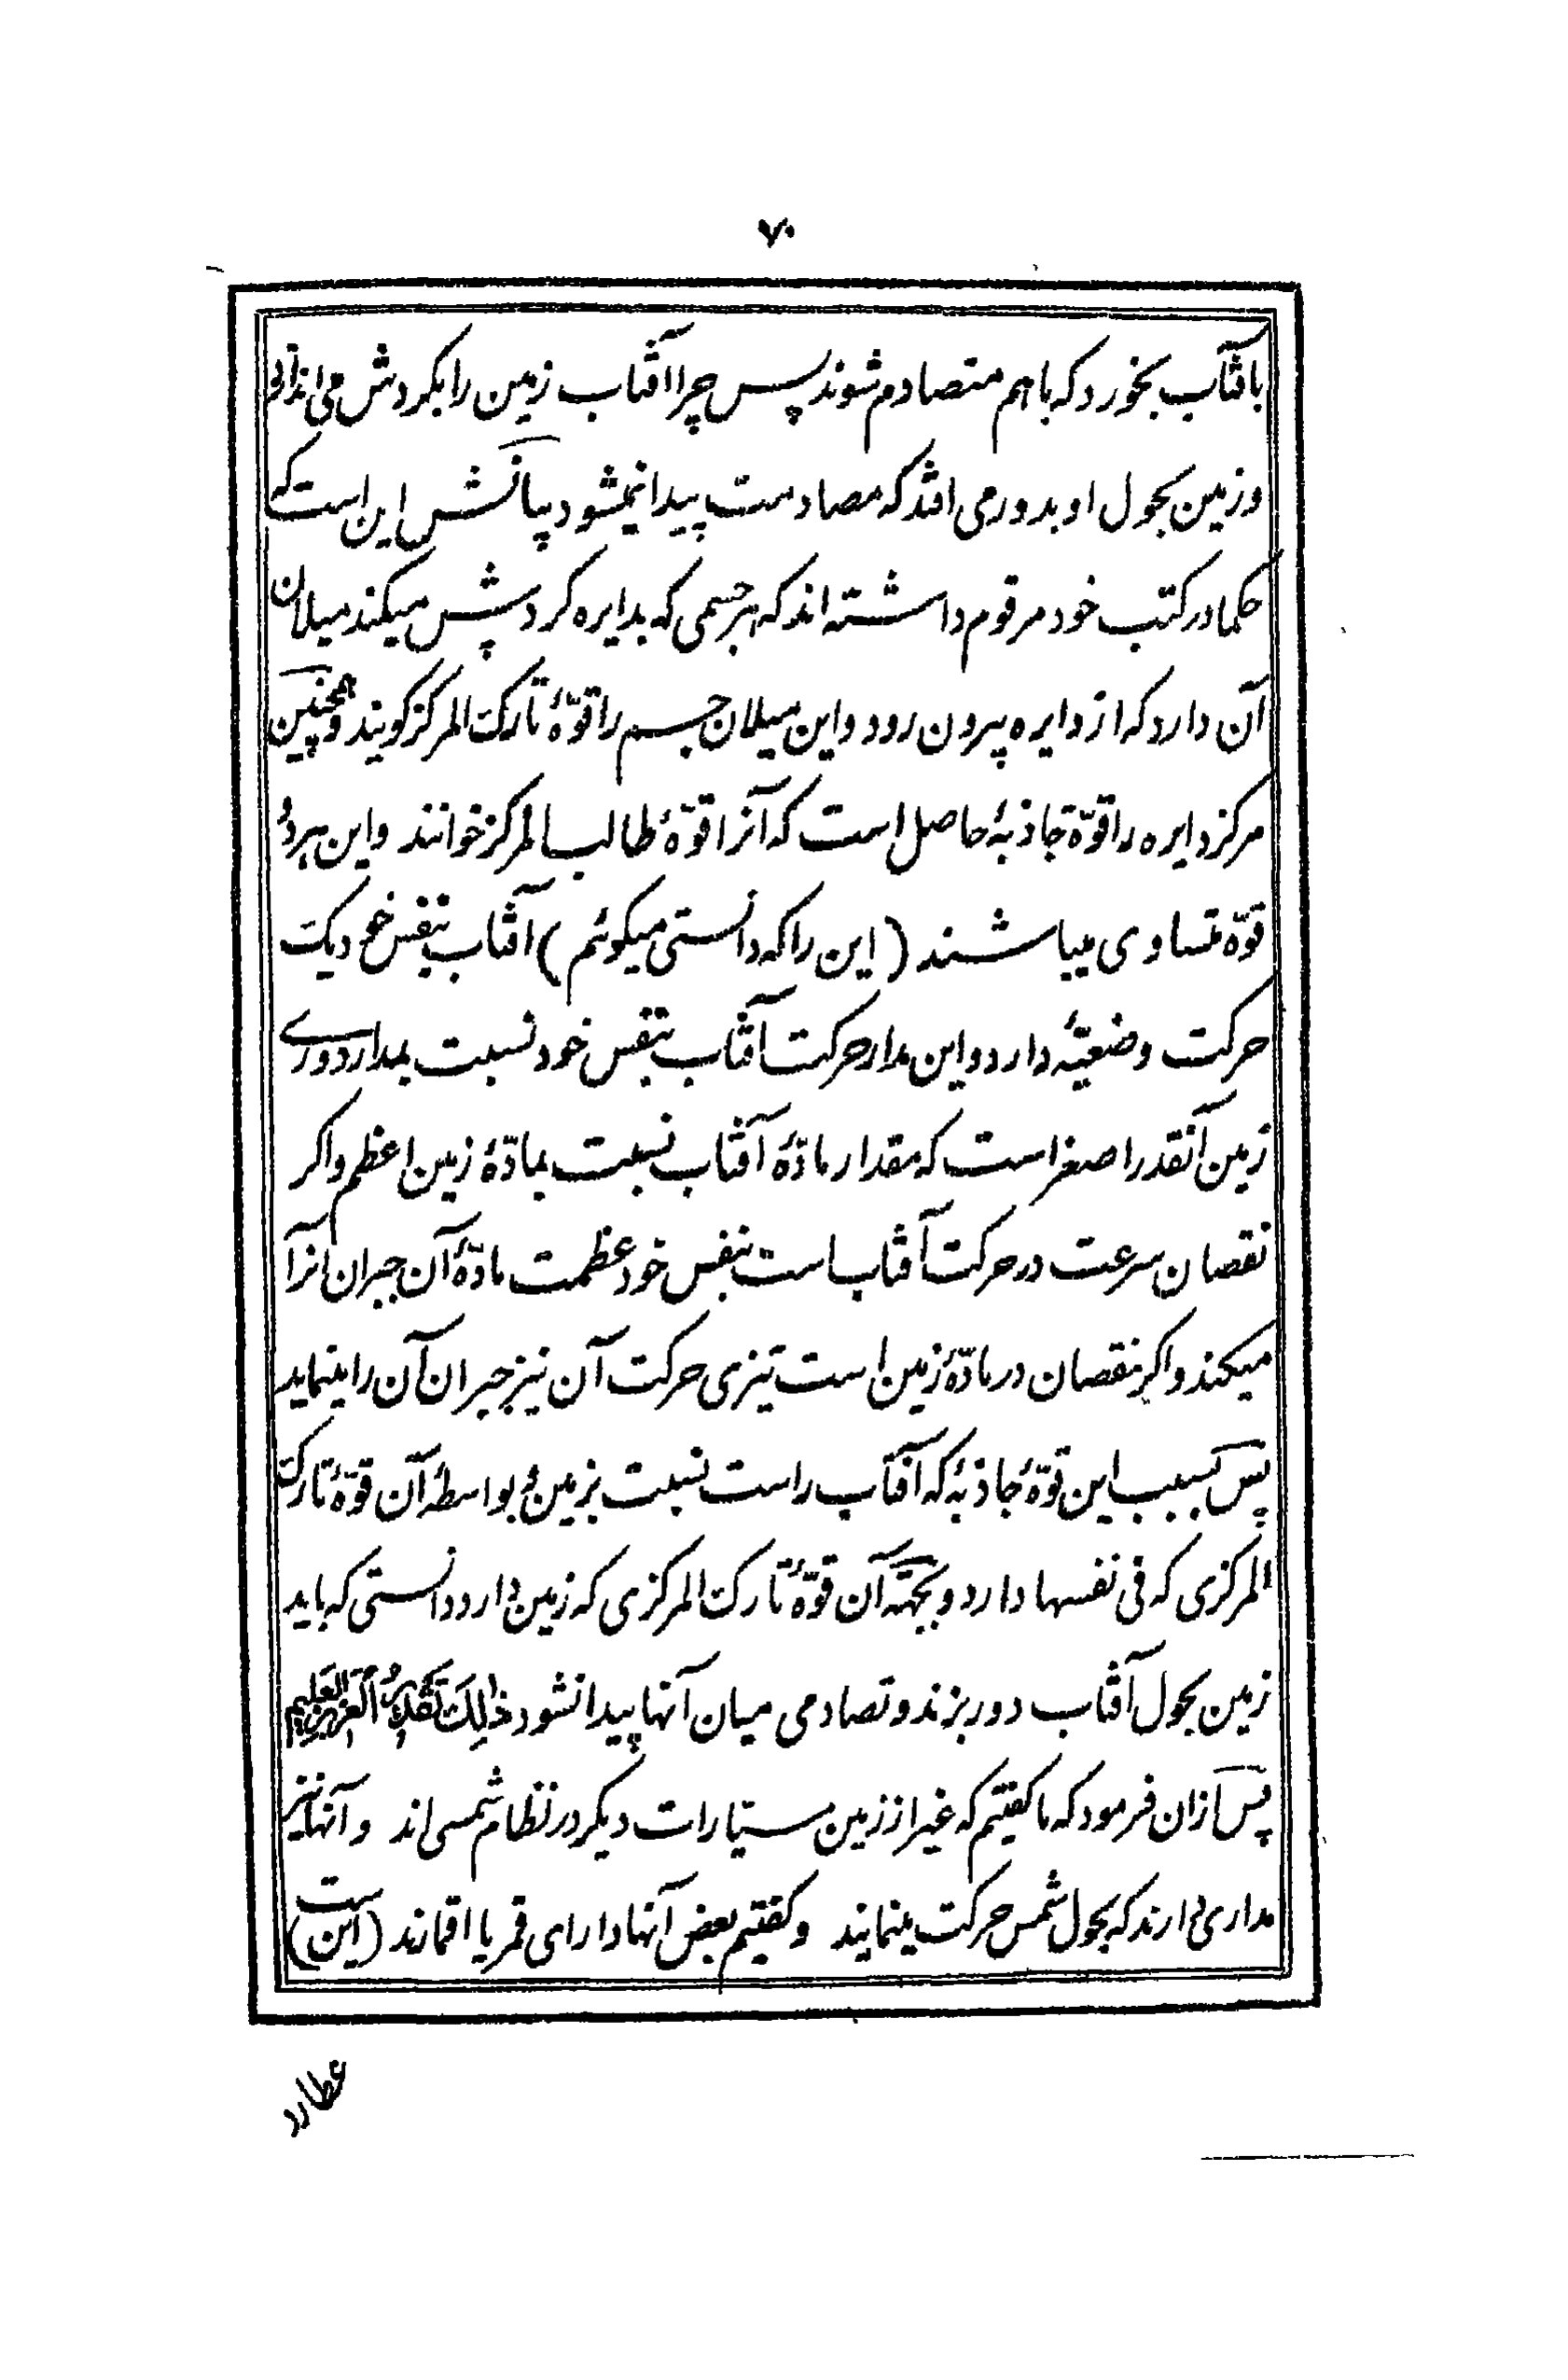 ۷۰
بافتاب بخورد که باهم متصادم شوند پس چرا آفتاب زمین را بکردش می اندازد
و زمین بحول او بدور می افتد که مصادمت پیدا نمیشود بیانش این است که
حکما در کتب خود مرقوم داشته اند که هر جسمی که بدایره کردش میکند میلان
آن دارد که از دایره بیرون رود و این میلان جسم را قوّهٔ تارک المرکز کویند و همچنین
مرکز دایره را قوّهٔ جاذبهٔ حاصل است که آنرا قوّهٔ طالب المرکز خوانند و این هر دو
قوّه متساوی میباشند (این را که دانستی میکوئم) آفتاب بنفس خود یک
حرکت وضعیّهٔ دارد و این مدار حرکت آفتاب بنفس خود نسبت بمدار دوری
زمین آنقدر اصغر است که مقدار مادّهٔ آفتاب نسبت بمادّهٔ زمین اعظم و اکر
نقصان سرعت در حرکت آفتاب است بنفس خود عظمت مادّهٔ آن جبران انرا
میکند و اکر نقصان در مادّهٔ زمین است تیزی حرکت آن نیز جبران آن را مینماید
پس بسبب این قوّهٔ جاذبهٔ که آفتاب راست نسبت بزمین و بواسطهٔ آن قوّهٔ تارک
المرکزی که فی نفسها دارد و بجهته آن قوّهٔ تارک المرکزی که زمین دارد دانستی که باید
زمین بحول آفتاب دور بزند و تصادمی میان آنها پیدا نشود ذٰلِكَ تَقْدِيرُ الْعَزِيزِ الْعَلِيمِ
پس ازان فرمود که ما کفتیم که غیر از زمین سیّارات دیکر در نظام شمسی اند و آنها نیز
مداری دارند که بحول شمس حرکت مینمایند و کفتیم بعض آنها دارای قمر یا اقمارند (این است)
عطارد